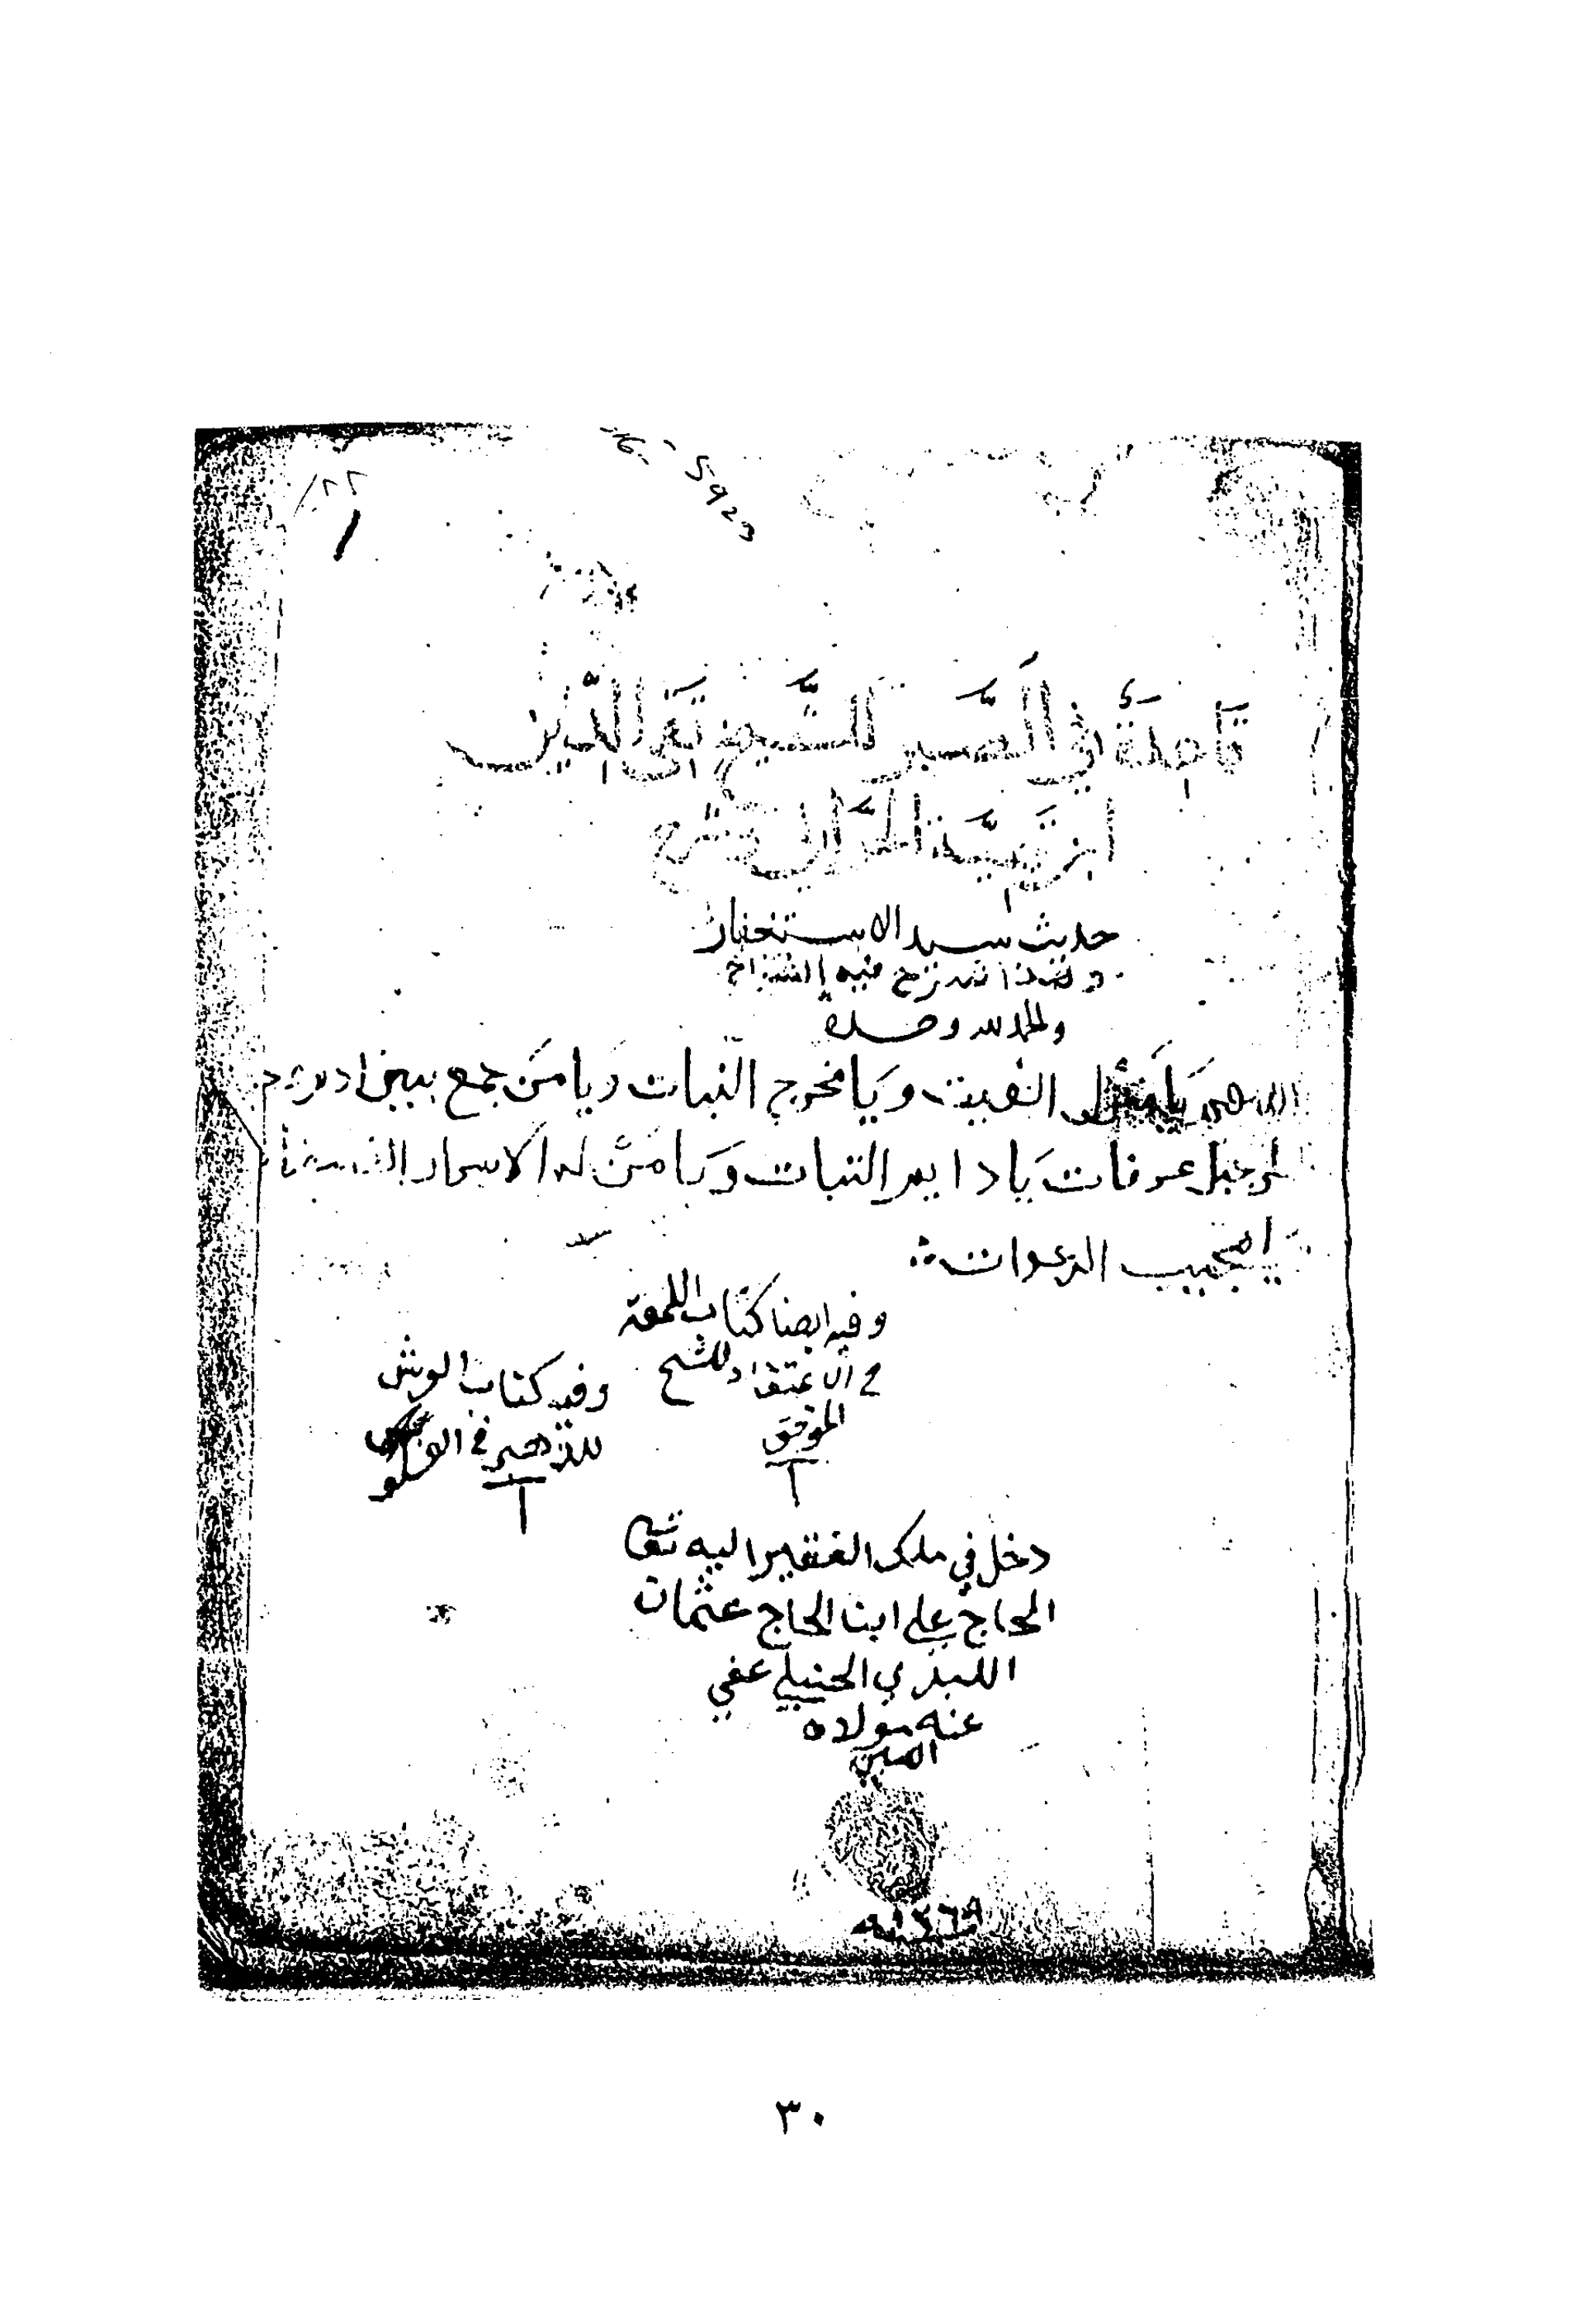 5923
١٢٢
قَاعِدَةٌ فِي الصَّبر للشَّيخ تقي الدِّين
ابن تَيميَّة الحرَّاني وشرح
حديث سيد الاستغفار
وهذا شرح فيه انشراح
والحمد لله وحده
اللاهم يَا منزل الغيث وَيَا مخرج النبات وَيا مَن جمع بين
جبل عرفات يَا دايم الثبات وَيا مَن له الاسماء
يا مجيب الدعوات
وفيه ايضا كتاب اللمعة
في الاعتقاد للشيخ
الموفق
وفيه كتاب العرش
للذهبي في
دخل في ملك الفقير اليه تعا
الحاج علي ابن الحاج عثمان
اللبدي الحنبلي عفي
عنه مولاه
المبين
١٢٦٨
٣٠